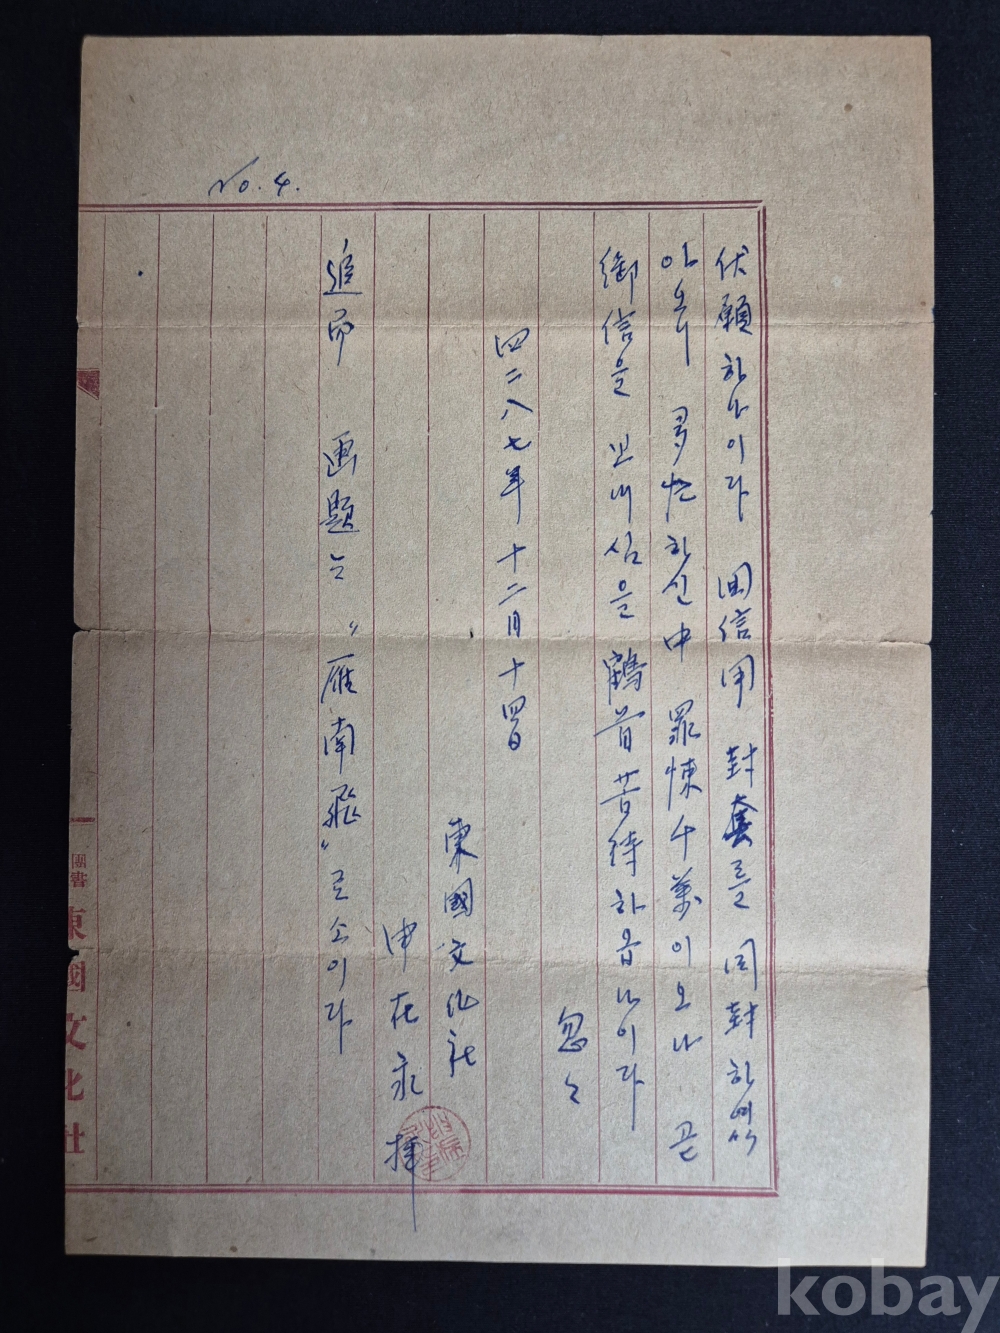 No. 4.
伏願하나이다 回信用 封套를 同封하였
아오니 多忙하신 中 罪悚千萬이오나 곧
御信을 보내심을 鶴首苦待하옵나이다
忽々
四二八七年 十二月 十四日
東國文化社
申在永 拝
追而 画題는 "雁南飛"로소이다
圖書 東國文化社
kobay